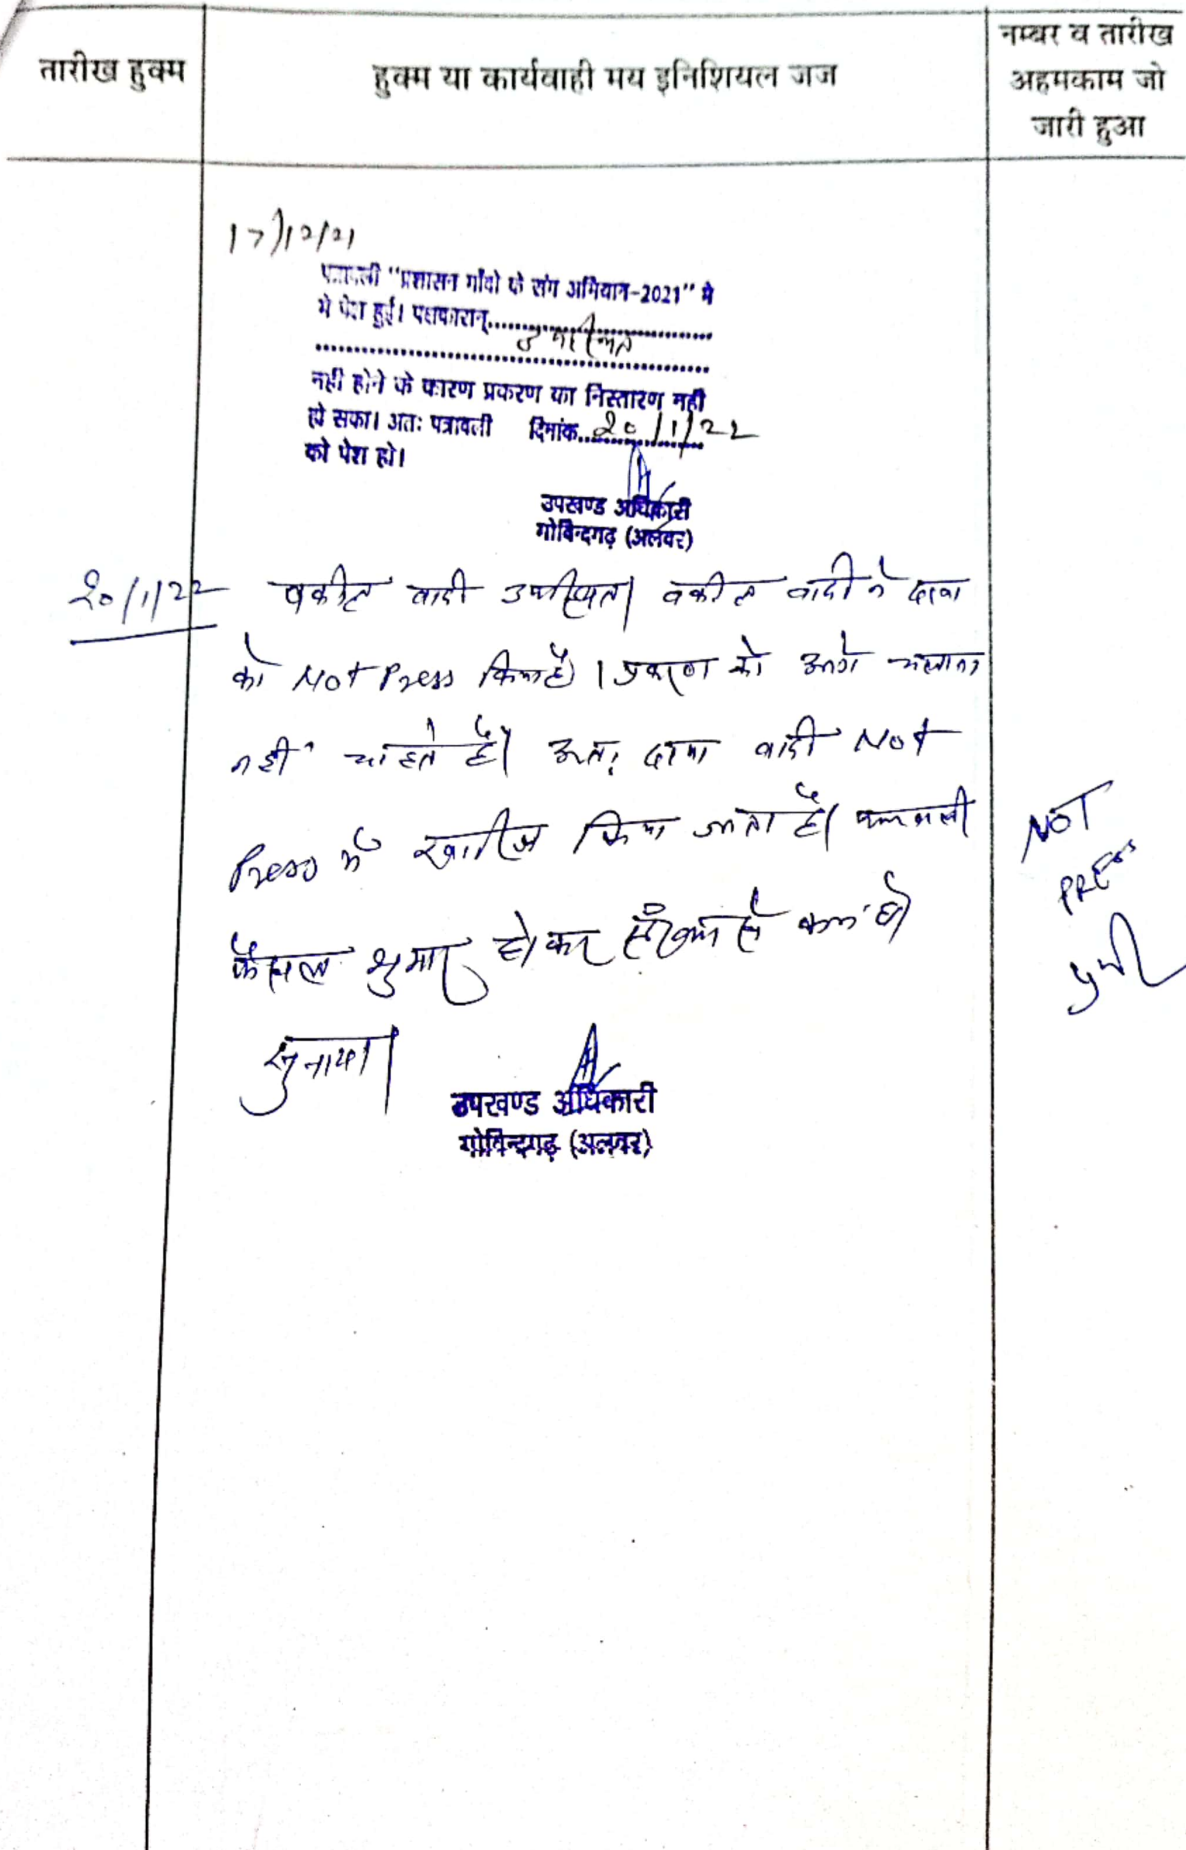 तारीख हुक्म
हुक्म या कार्यवाही मय इनिशियल जज
नम्बर व तारीख
अहमकाम जो
जारी हुआ
17/12/21
पत्रावली "प्रशासन गाँवो के संग अभियान-2021" मे
मे पेश हुई। पक्षकारान्
उपस्थित
नही होने के कारण प्रकरण का निस्तारण नही
हो सका। अतः पत्रावली दिनांक 20/1/22
को पेश हो।
उपखण्ड अधिकारी
गोविन्दगढ़ (अलवर)
20/1/22 वकील वादी उपस्थित। वकील वादी ने दावा
को Not Press किया है। प्रकरण को आगे चलाना
नही चाहते है। अतः दावा वादी Not
Press मे खारिज किया जाता है। पत्रावली
फैसल शुमार होकर से कम हो
सुनाया।
उपखण्ड अधिकारी
गोविन्दगढ़ (अलवर)
NOT
PRESS